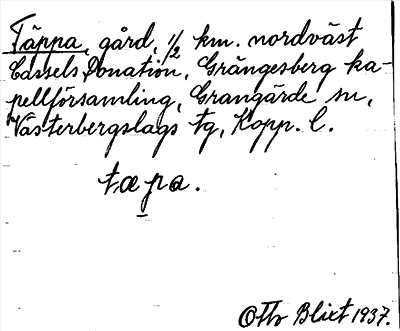 Täppa, gård, 1/2 km. nordväst
Cassels Donation, Grängesberg ka-
pellförsamling, Grangärde sn,
Västerbergslags tg, Kopp. l.
tæpa.
Otto Blixt 1937.